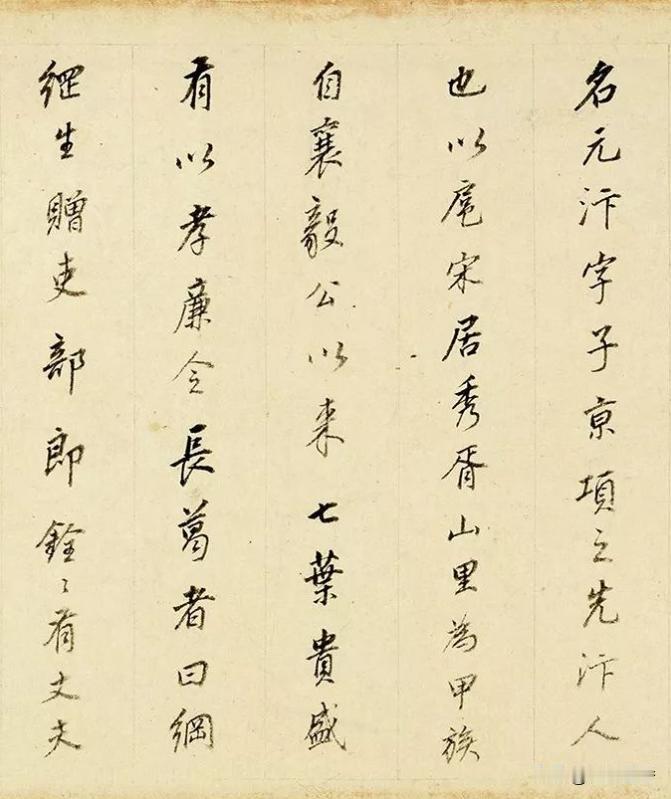 名元汴字子京項之先汴人
也以扈宋居秀胥山里為甲族
自襄毅公以来七葉貴盛
有以孝廉令長葛者曰綱
綱生贈吏部郎銓〻有丈夫